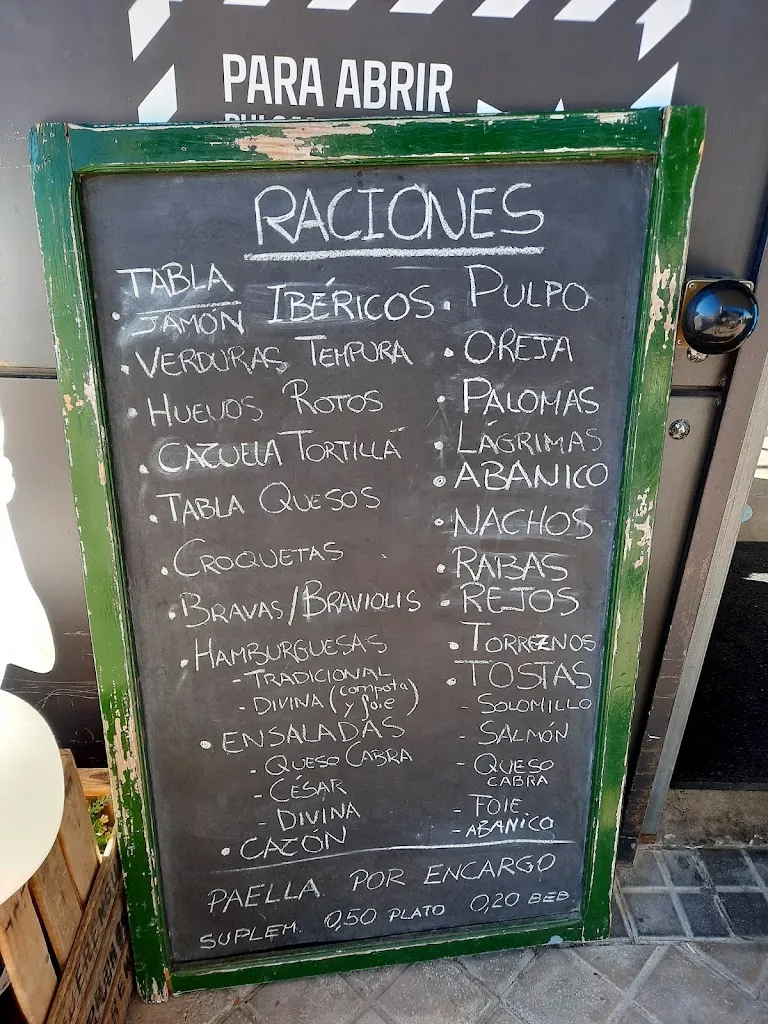 PARA ABRIR
RACIONES
TABLA
JAMÓN IBÉRICOS
• VERDURAS TEMPURA
• HUEVOS ROTOS
• CAZUELA TORTILLA
• TABLA QUESOS
• CROQUETAS
• BRAVAS/BRAVIOLIS
• HAMBURGUESAS
- TRADICIONAL
- DIVINA (compota y foie)
• ENSALADAS
- QUESO CABRA
- CÉSAR
- DIVINA
• CAZÓN
• PULPO
• OREJA
• PALOMAS
• LÁGRIMAS
• ABANICO
• NACHOS
• RABAS
• REJOS
• TORREZNOS
• TOSTAS
- SOLOMILLO
- SALMÓN
- QUESO
CABRA
- FOIE
- ABANICO
PAELLA POR ENCARGO
SUPLEM. 0,50 PLATO 0,20 BEB.